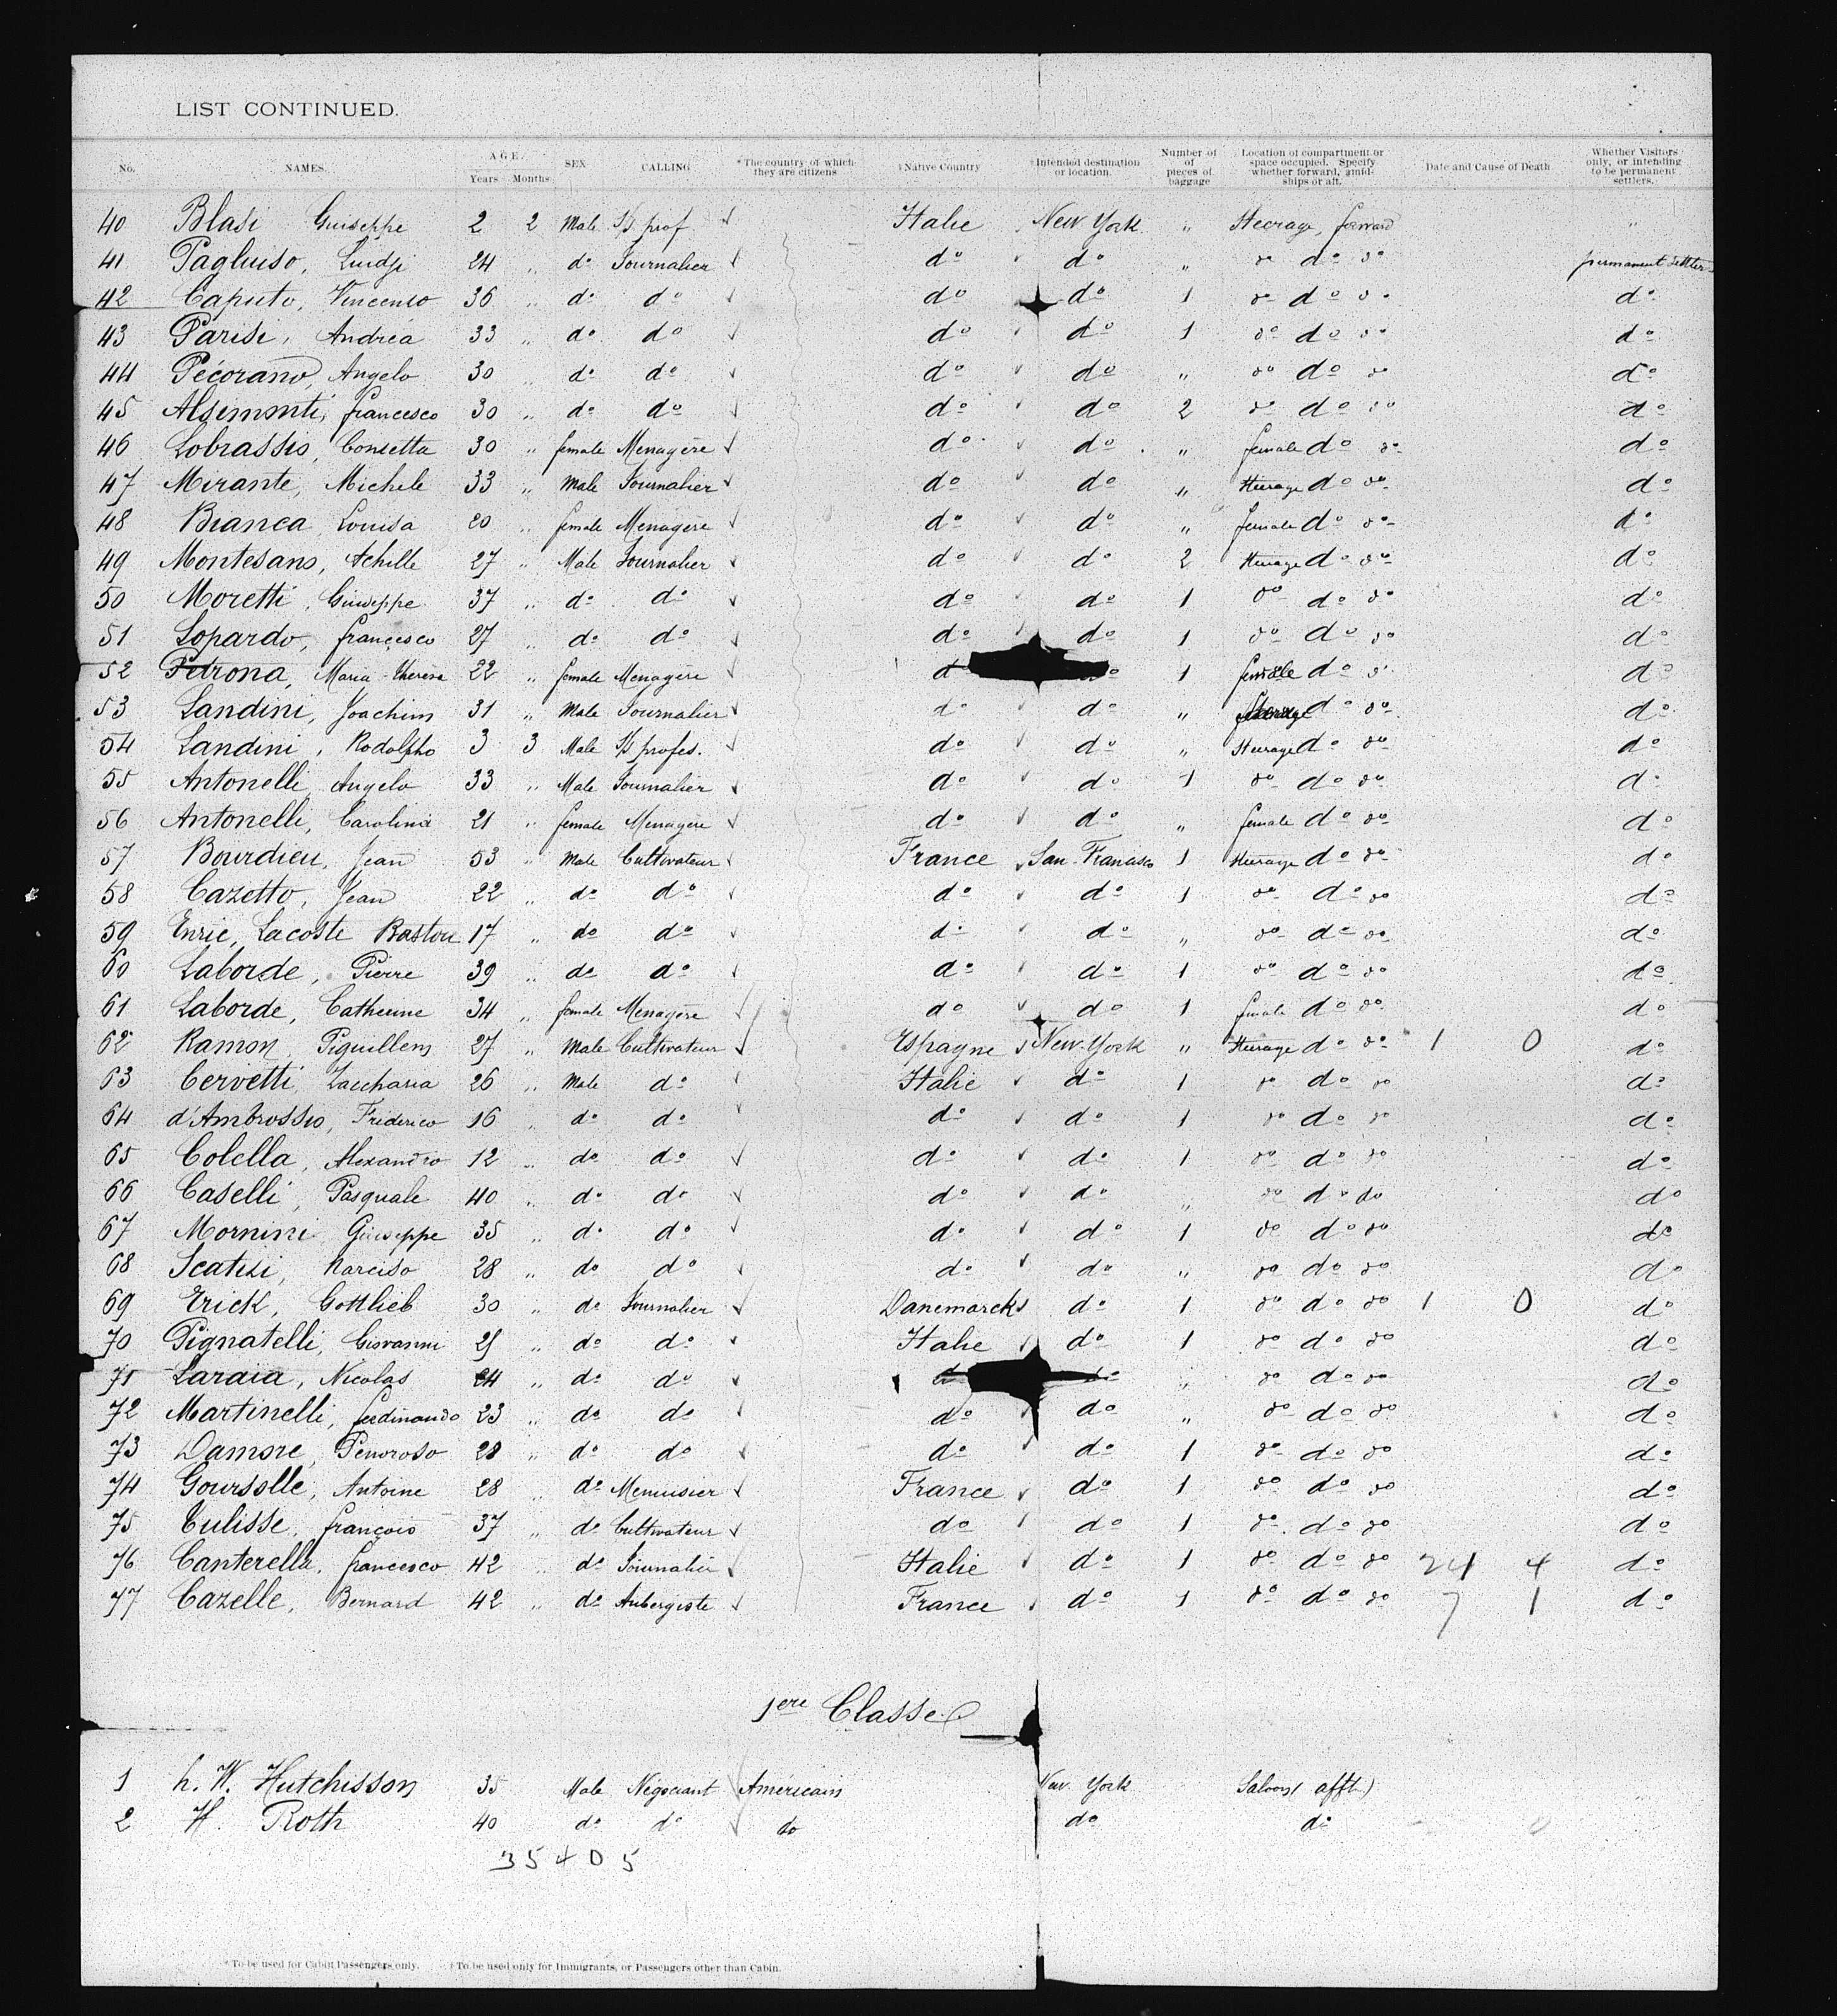 LIST CONTINUED.
No. NAMES. AGE. Years Months SEX CALLING *The country of which they are citizens †Native Country Intended destination or location. Number of of pieces of baggage Location of compartment or space occupied. Specify whether forward, amidships or aft. Date and Cause of Death Whether Visitors only, or intending to be permanent settlers.
40 Blasi Guiseppe 2 2 Male S/s prof Italie New York " Steerage, forward "
41 Pagliuso, Luidji 24 " do Journalier do do " do do do permanent settler
42 Caputo, Vincenzo 36 " do do do do 1 do do do do
43 Parisi, Andréa 33 " do do do do 1 do do do do
44 Pécorano, Angelo 30 " do do do do " do do do do
45 Francesco 30 " do do do do 2 do do do do
46 Lobrassio, Consetta 30 " female Menagère do do " female do do do
47 Mirante, Michele 33 " Male Journalier do do " Steerage do do do
48 Bianca, Louisa 20 " female Menagère do do " female do do do
49 Montesano, Achille 27 " Male Journalier do do 2 Steerage do do do
50 Moretti, Giuseppe 37 " do do do do 1 do do do do
51 Lopardo, francesco 27 " do do do do 1 do do do do
52 Petrona, Maria-Theresa 22 " female Menagère d do 1 female do do do
53 Landini, Joachim 31 " Male Journalier do do " Steerage do do do
54 Landini, Rodolpho 3 3 Male S/s profes. do do " Steerage do do do
55 Antonelli, Angelo 33 " Male Journalier do do 1 do do do do
56 Antonelli, Carolina 21 " female Menagere do do " female do do do
57 Bourdieu, Jean 53 " Male Cultivateur France San-Francisco 1 Steerage do do do
58 Cazetto, Jean 22 " do do do do 1 do do do do
59 Enric, Lacoste Bastou 17 " do do do do " do do do do
60 Laborde, Pierre 39 " do do do do 1 do do do do
61 Laborde, Catherine 34 " female Menagère do do 1 female do do do
62 Ramon, Piguillem 27 " Male Cultivateur Espagne New-York " Steerage do do 1 0 do
63 Cervetti, Zaccharia 26 " Male do Italie do 1 do do do do
64 d'Ambrossio, Friderico 16 " do do do do 1 do do do do
65 Colella, Alexandro 12 " do do do do 1 do do do do
66 Caselli, Pasquale 40 " do do do do " do do do do
67 Mornini, Giuseppe 35 " do do do do 1 do do do do
68 Scatizi, Narciso 28 " do do do do " do do do do
69 Erick, Gottlieb 30 " do Journalier Danemarck do 1 do do do 1 0 do
70 Pignatelli, Giovanni 25 " do do Italie do 1 do do do do
71 Laraia, Nicolas 24 " do do d do " do do do do
72 Martinelli, ferdinando 23 " do do do do " do do do do
73 Damore, Penoroso 28 " do do do do 1 do do do do
74 Goursolle, Antoine 28 " do Menuisier France do 1 do do do do
75 Culisse, françois 37 " do Cultivateur do do 1 do do do do
76 Canterella, francesco 42 " do Journalier Italie do 1 do do do 24 4 do
77 Cazelle, Bernard 42 " do Aubergiste France do 1 do do do 7 1 do
1ere Classe
1 h. W. Hutchisson 35 Male Négociant Américain New York Saloon (afft)
2 H. Roth 40 do do do do do
35405
* To be used for Cabin Passengers only. † To be used only for Immigrants, or Passengers other than Cabin.